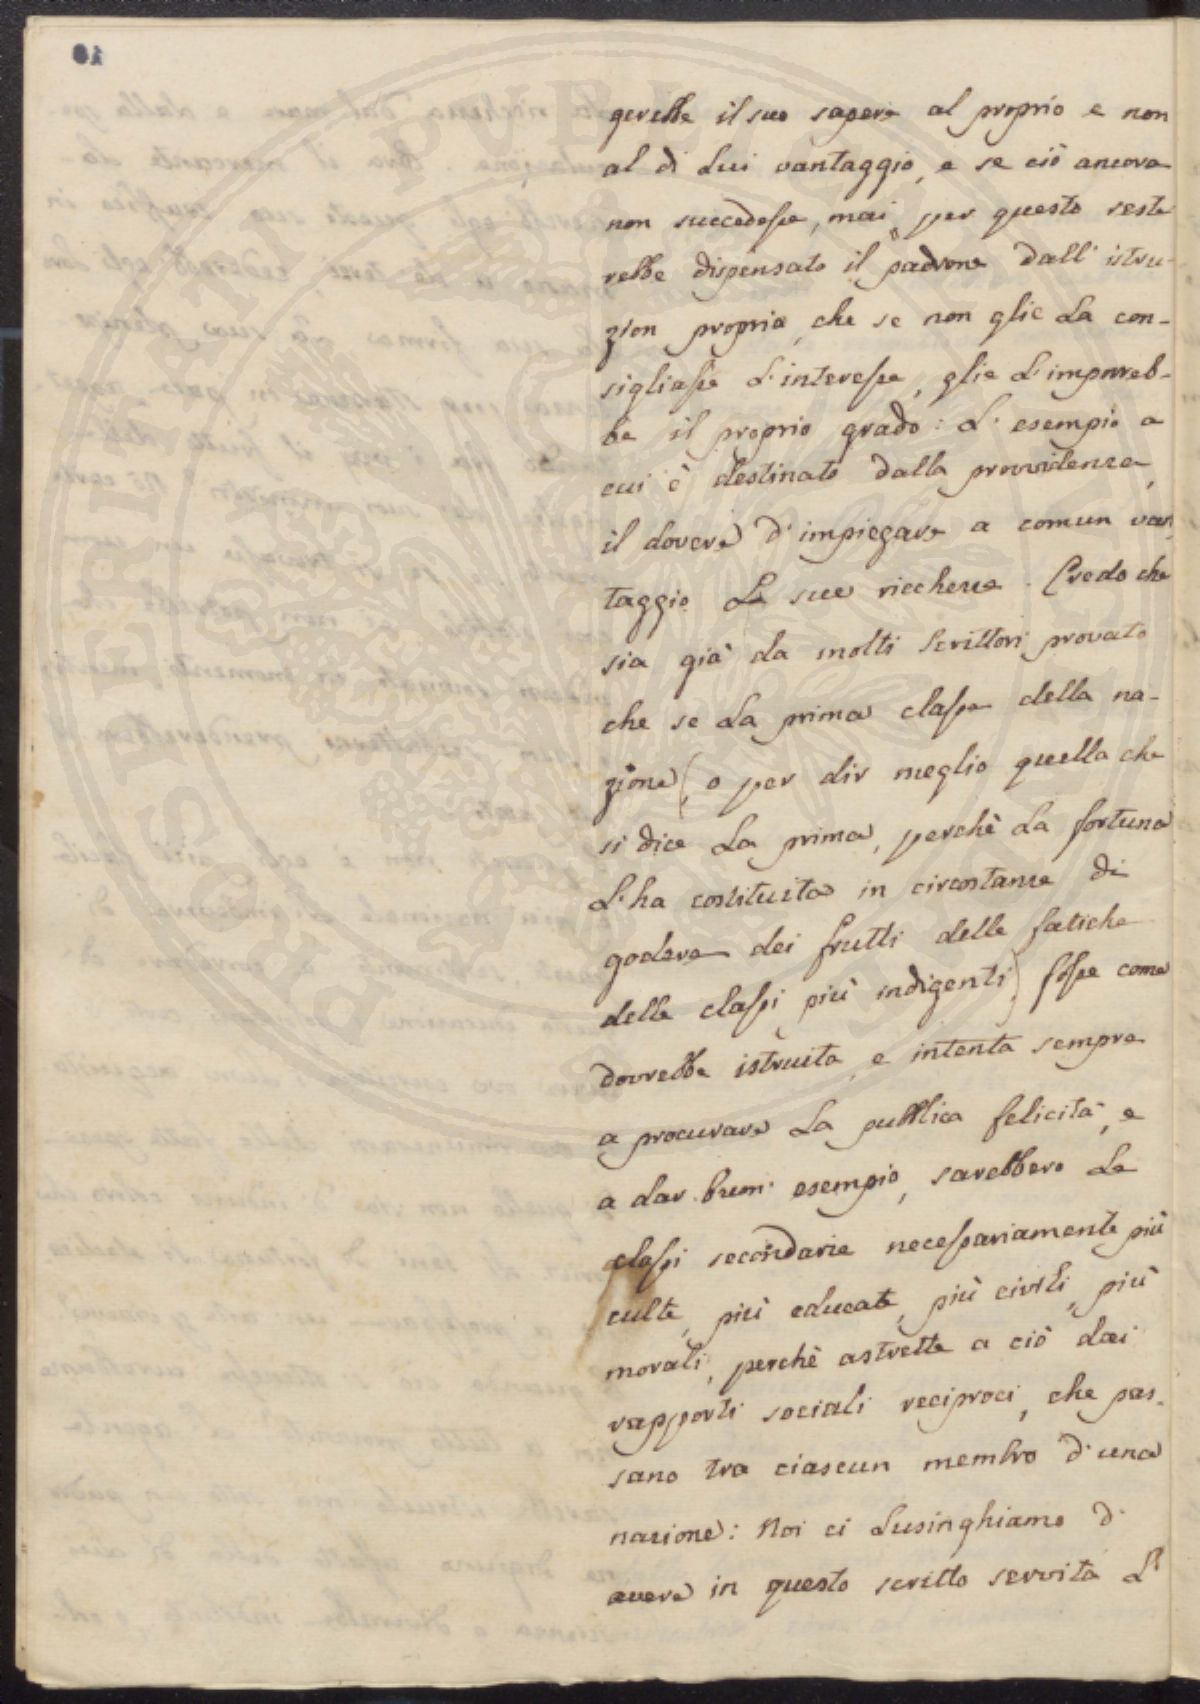 gerebbe il suo sapere al proprio e non
al di lui vantaggio, e se ciò ancora
non succedesse, mai per questo reste
rebbe dispensato il padrone dall'istru-
zion propria, che se non glie la con-
sigliasse l'interesse, glie l'imporreb-
be il proprio grado: l'esempio a
cui è destinato dalla provvidenza,
il dovere d'impiegare a comun van
taggio le sue ricchezze. Credo che
sia già da molti Scrittori provato
che se la prima classe della na-
zione (o per dir meglio quella che
si dice la prima, perchè la fortuna
l'ha costituita in circostanze di
godere dei frutti delle fatiche
delle classi più indigenti) fosse come
dovrebbe istruita, e intenta sempre
a procurare la pubblica felicità, e
a dar buon esempio, sarebbero le
classi secondarie necessariamente più
culte, più educate, più civili, più
morali, perchè astrette a ciò dai
rapporti sociali reciproci, che pas-
sano tra ciascun membro d'una
nazione: Noi ci lusinghiamo d'
avere in questo scritto servita l'